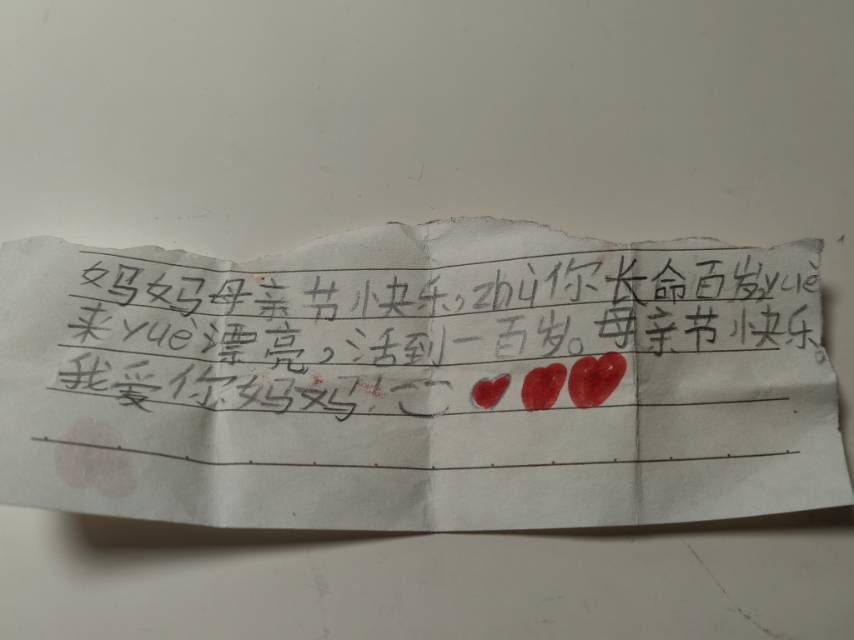 妈妈母亲节快乐,zhù你长命百岁,yuè
来yuè漂亮,活到一百岁。母亲节快乐。
我爱你妈妈!